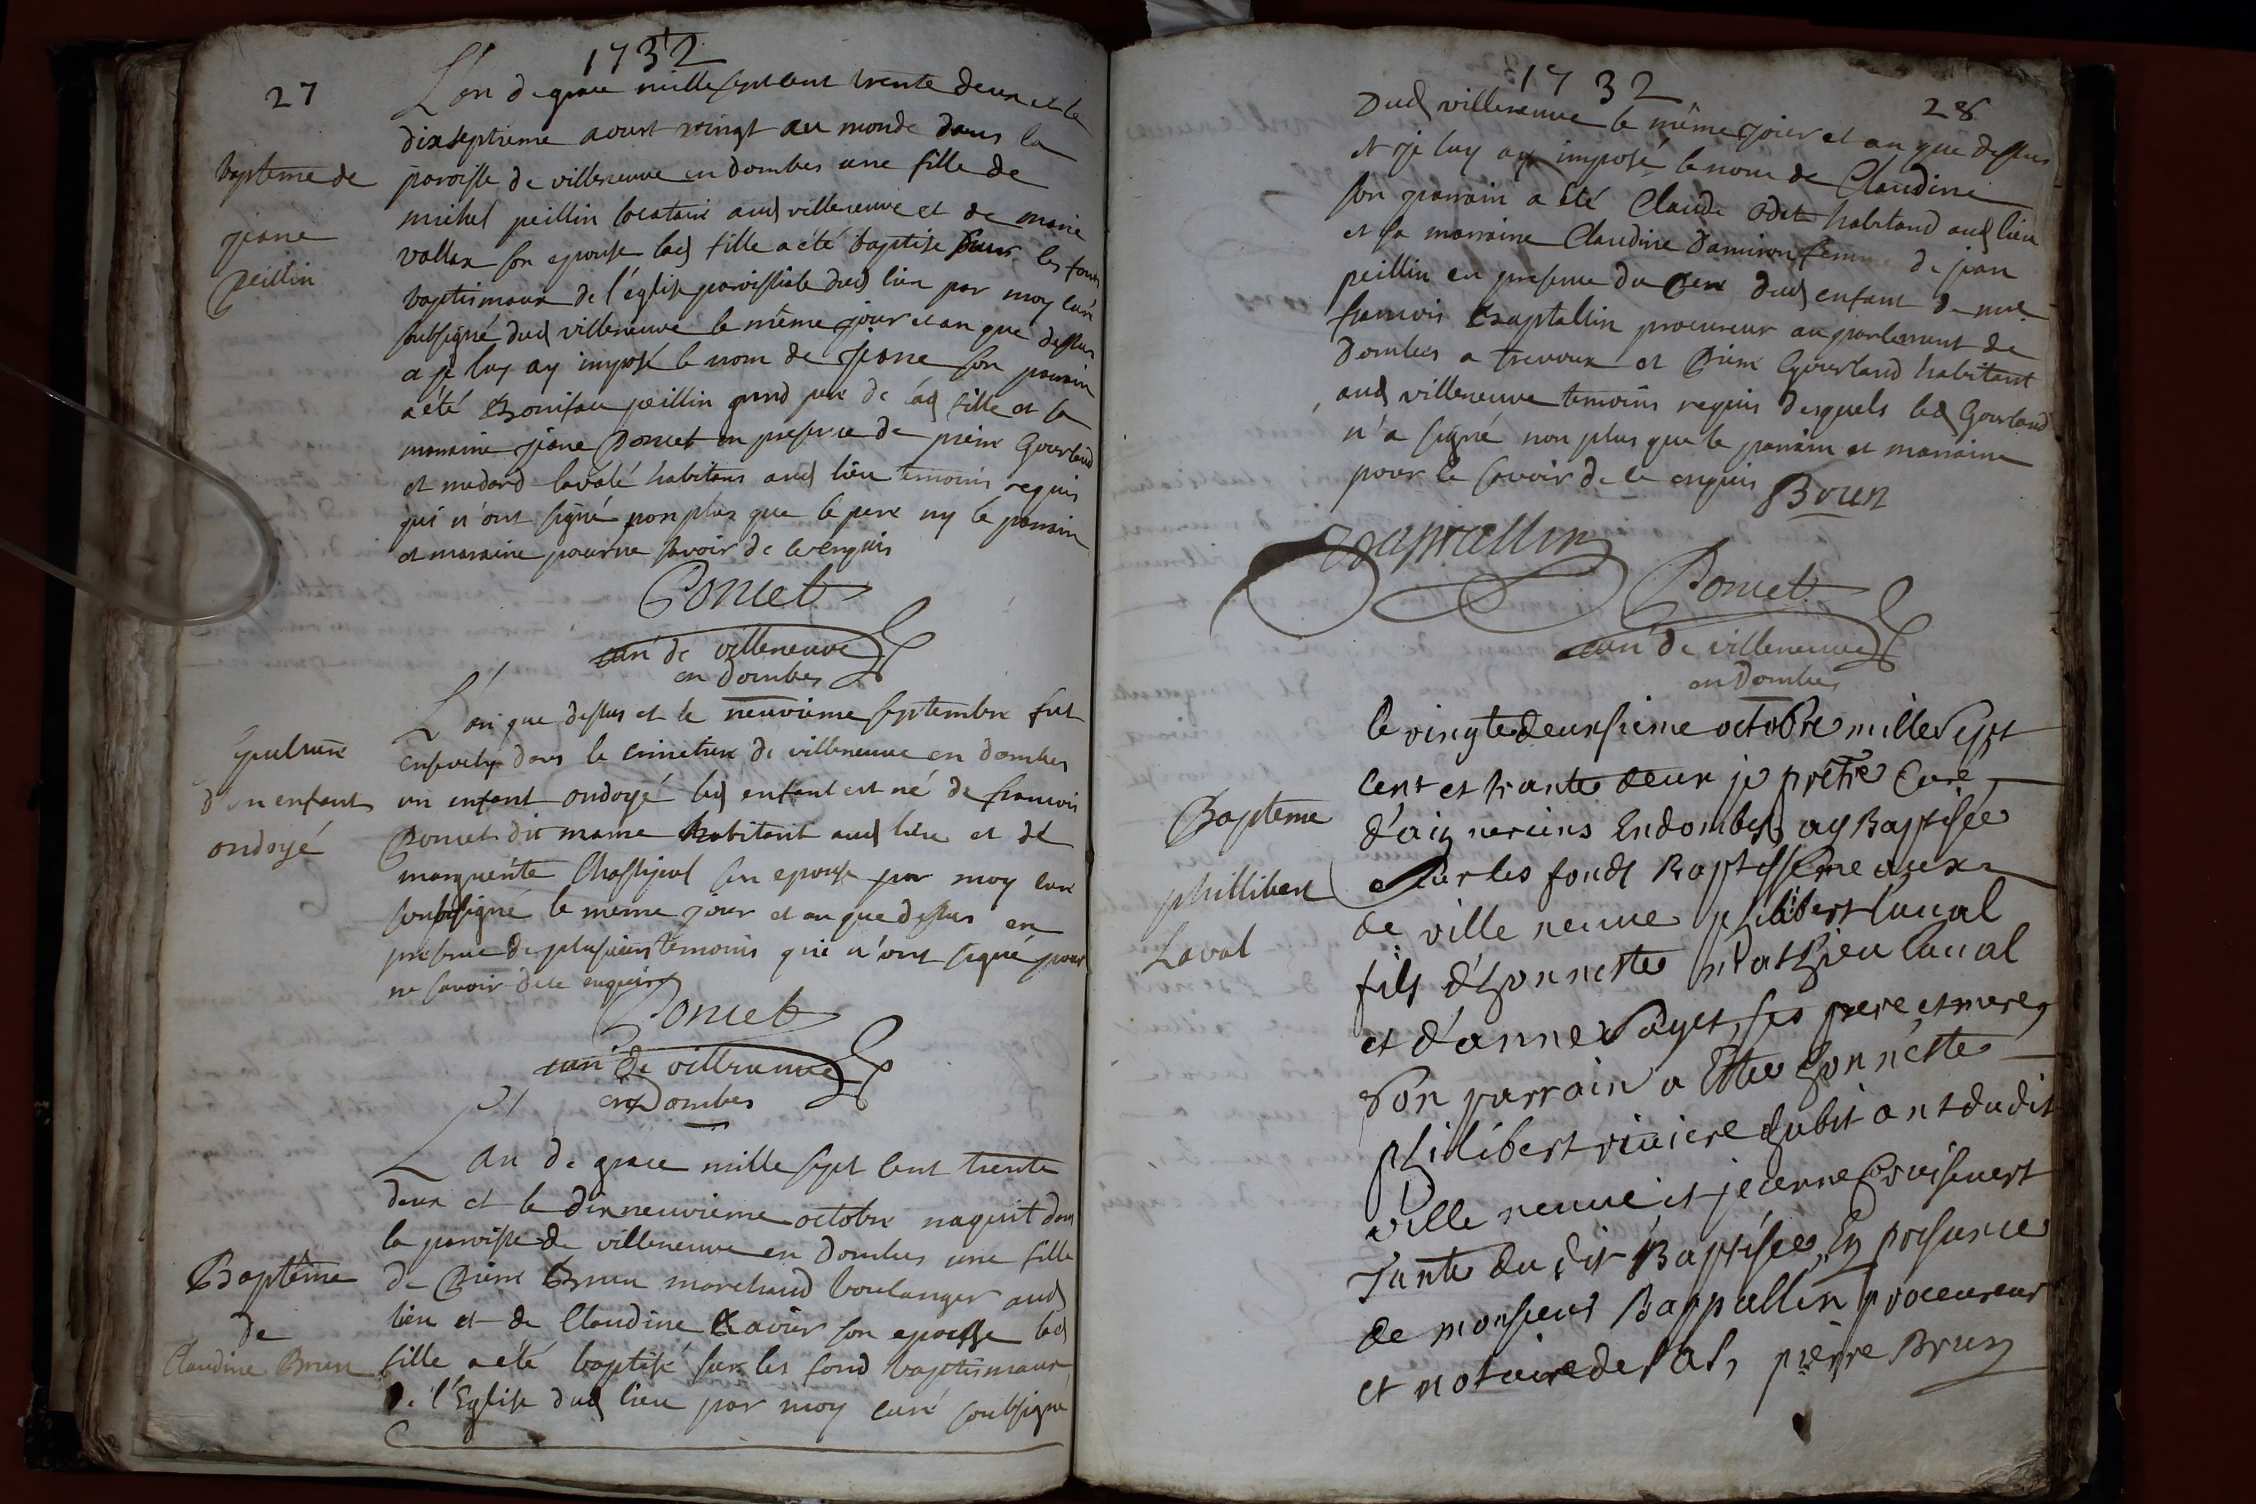 1732
27
L'an de grace mille sept cent trente deux et le
dixseptieme aoust vingt au monde dans la
paroisse de villeneuve en dombes une fille de
michel peillin locataire aud villeneuve et de marie
vallax son epouse lad fille a été baptise sur les fonts
baptismaux de l'église paroissiale dud lieu par moy curé
soubsigné dud villeneuve le même jour et an que dessus
a je luy ay imposé le nom de Jeane son parrain
a été Boniface peillin grand pere de lad fille et la
marraine jeane Poncet en presence de pierre Gourland
et medard lavalé habitans aud lieu temoins requis
qui n'ont signé non plus que le pere ny le parrain
et maraine pour ne savoir de ce enquis
Poncet
curé de villeneuve
en Dombes
baptême de
jeane
peillin
L'an que dessus et le neuvieme septembre fut
ensevely dans le cimetiere de villeneuve en dombes
un enfant ondoyé led enfant est né de francois
Poncet dit mame habitant aud lieu et de
marguerite Chassipol son epouse par moy curé
soubsigné le meme jour et an que dessus en
presence de plusieurs temoins qui n'ont signé pour
ne savoir de ce enquis
Poncet
curé de villeneuve
en Dombes
Sepulture
d'un enfant
ondoyé
L'an de grace mille sept cent trente
deux et le dixneuvieme octobre naquit dans
la paroisse de villeneuve en Dombes une fille
de Pierre Brun marchand boulanger aud
lieu et de Claudine son epouse lad
fille a été baptisé sur les fond baptismaux
de l'Eglise dud lieu par moy curé soubsigné
Baptême
de
Claudine Brun
1732
28
Dud villeneuve le même jour et an que dessus
et je luy ay imposé le nom de Claudine
son parrain a été Claude odet habitand aud lieu
et sa marraine Claudine Damiron femme de jean
peillin en presence du Pere dud enfant de mre
francois Bapallin procureur au parlement de
Dombes a trevoux et Pierre Gourland habitant
aud villeneuve temoins requis desquels led Gourland
n'a signé non plus que le parrain et marraine
pour le savoir de ce enquis
Brun
Bapallin
Poncet
curé de villeneuve
en Dombes
le vingtedeuxsieme octobre mille sept
cent et trante deux je prêtre Curé
d'aignereins En dombes ay Baptisée
sur les fonds Baptissemeaux
de ville neuve philibert laual
fils d'honneste Mathieu laual
et d'anne payet ses pere et mere
son parrain a Ette honneste
philibert riuiere habitant dudit
ville neuve et jeanne
Tante du dit Baptisée En presence
de monsieur Bappallin procureur
et notaire de pierre Brun
Baptême
phillibert
Laval